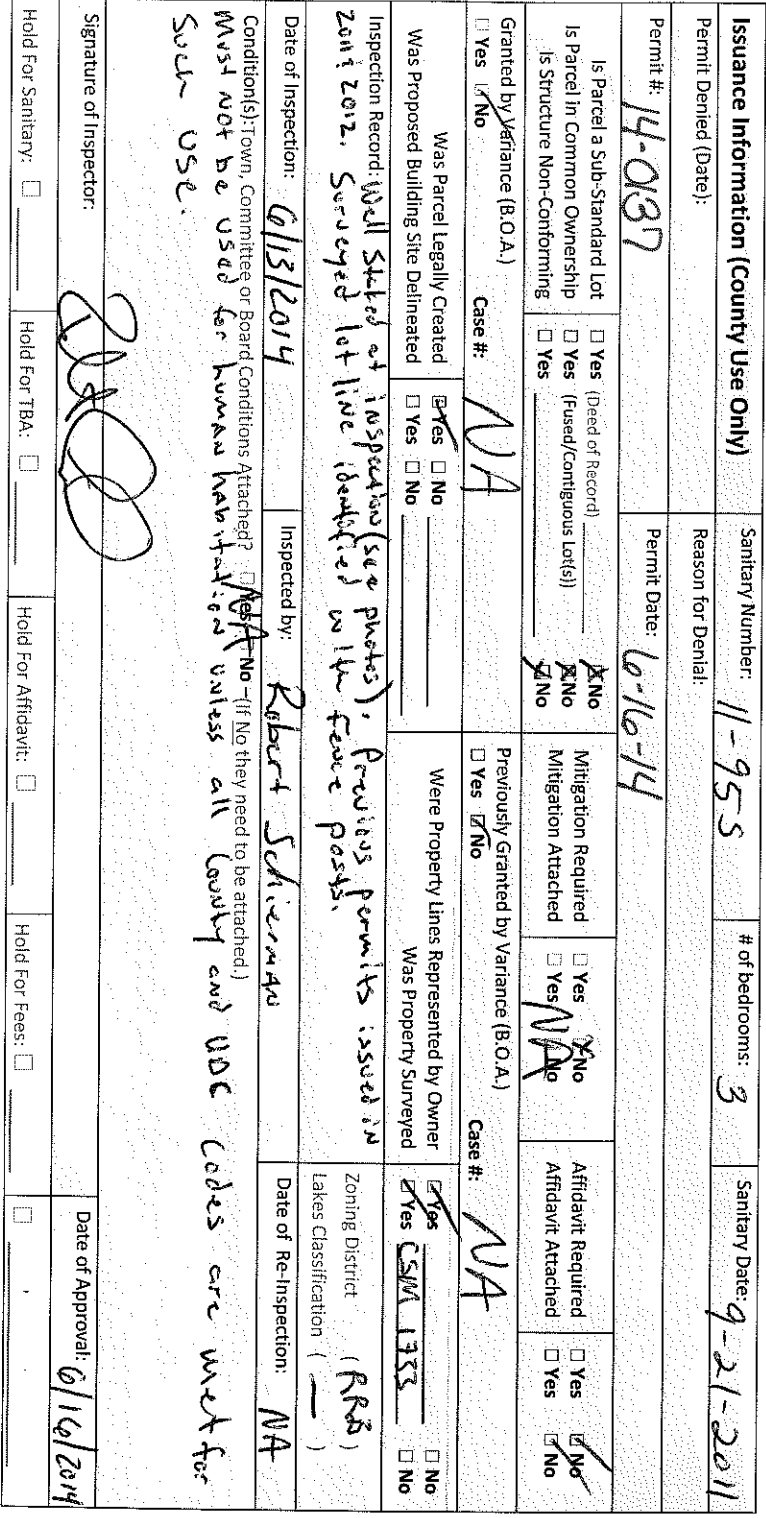 Issuance Information (County Use Only)
Sanitary Number: 11-955
# of bedrooms: 3
Sanitary Date: 9-21-2011
Permit Denied (Date):
Reason for Denial:
Permit #: 14-0187
Permit Date: 6-16-14
Is Parcel a Sub-Standard Lot ☐ Yes (Deed of Record) ☒ No
Is Parcel in Common Ownership ☐ Yes (Fused/Contiguous Lot(s)) ☒ No
Is Structure Non-Conforming ☐ Yes ☒ No
Mitigation Required ☐ Yes ☒ No
Mitigation Attached ☐ Yes ☐ No NA
Affidavit Required ☐ Yes ☑ No
Affidavit Attached ☐ Yes ☑ No
Granted by Variance (B.O.A.)
☐ Yes ☑ No Case #: NA
Previously Granted by Variance (B.O.A.)
☐ Yes ☑ No Case #: NA
Was Parcel Legally Created ☑ Yes ☐ No
Was Proposed Building Site Delineated ☐ Yes ☐ No
Were Property Lines Represented by Owner ☑ Yes ☐ No
Was Property Surveyed ☑ Yes CSM 1733 ☐ No
Inspection Record: Well Staked at inspection (see photos). Previous permits issued in
2011 2012. Surveyed lot line identified with fence posts.
Zoning District (RRB)
Lakes Classification ( — )
Date of Inspection: 6/13/2014
Inspected by: Robert Schierman
Date of Re-Inspection: NA
Condition(s): Town, Committee or Board Conditions Attached? ☐ Yes ☐ No – (If No they need to be attached.) NA
Must not be used for human habitation unless all County and UDC Codes are met for
Such use.
Signature of Inspector:
Date of Approval: 6/16/2014
Hold For Sanitary: ☐
Hold For TBA: ☐
Hold For Affidavit: ☐
Hold For Fees: ☐
☐